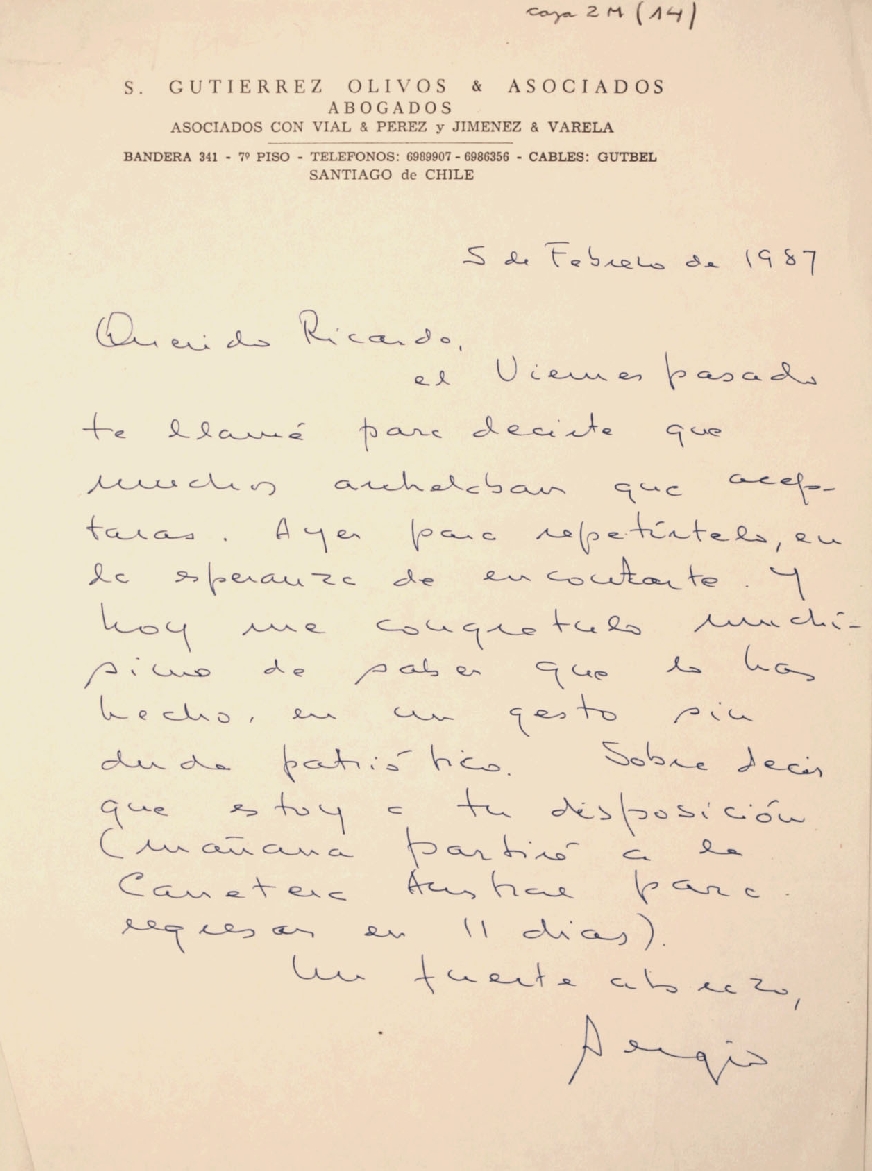 caja 2 M (14)
S. GUTIERREZ OLIVOS & ASOCIADOS
ABOGADOS
ASOCIADOS CON VIAL & PEREZ y JIMENEZ & VARELA
BANDERA 341 - 7º PISO - TELEFONOS: 6989907 - 6986356 - CABLES: GUTBEL
SANTIAGO de CHILE
5 de Febrero de 1987
Querido Ricardo,
el Viernes pasado
te llamé para decirte que
muchos anhelaban que acep-
taras. Ayer para repetírtelo, en
la esperanza de encontrarte. Y
hoy me congratulo muchí-
simo de saber que lo has
hecho, en un gesto sin
duda patriótico. Sobre decir
que estoy a tu disposición
(mañana partiró a la
Carretera Austral para
regresar en 11 dias).
Un fuerte abrazo,
Sergio